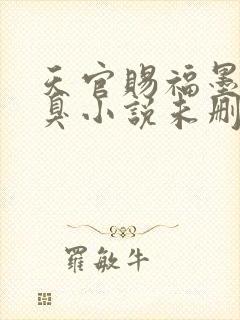 天官賜福墨
臭小說未刪
羅敏牛